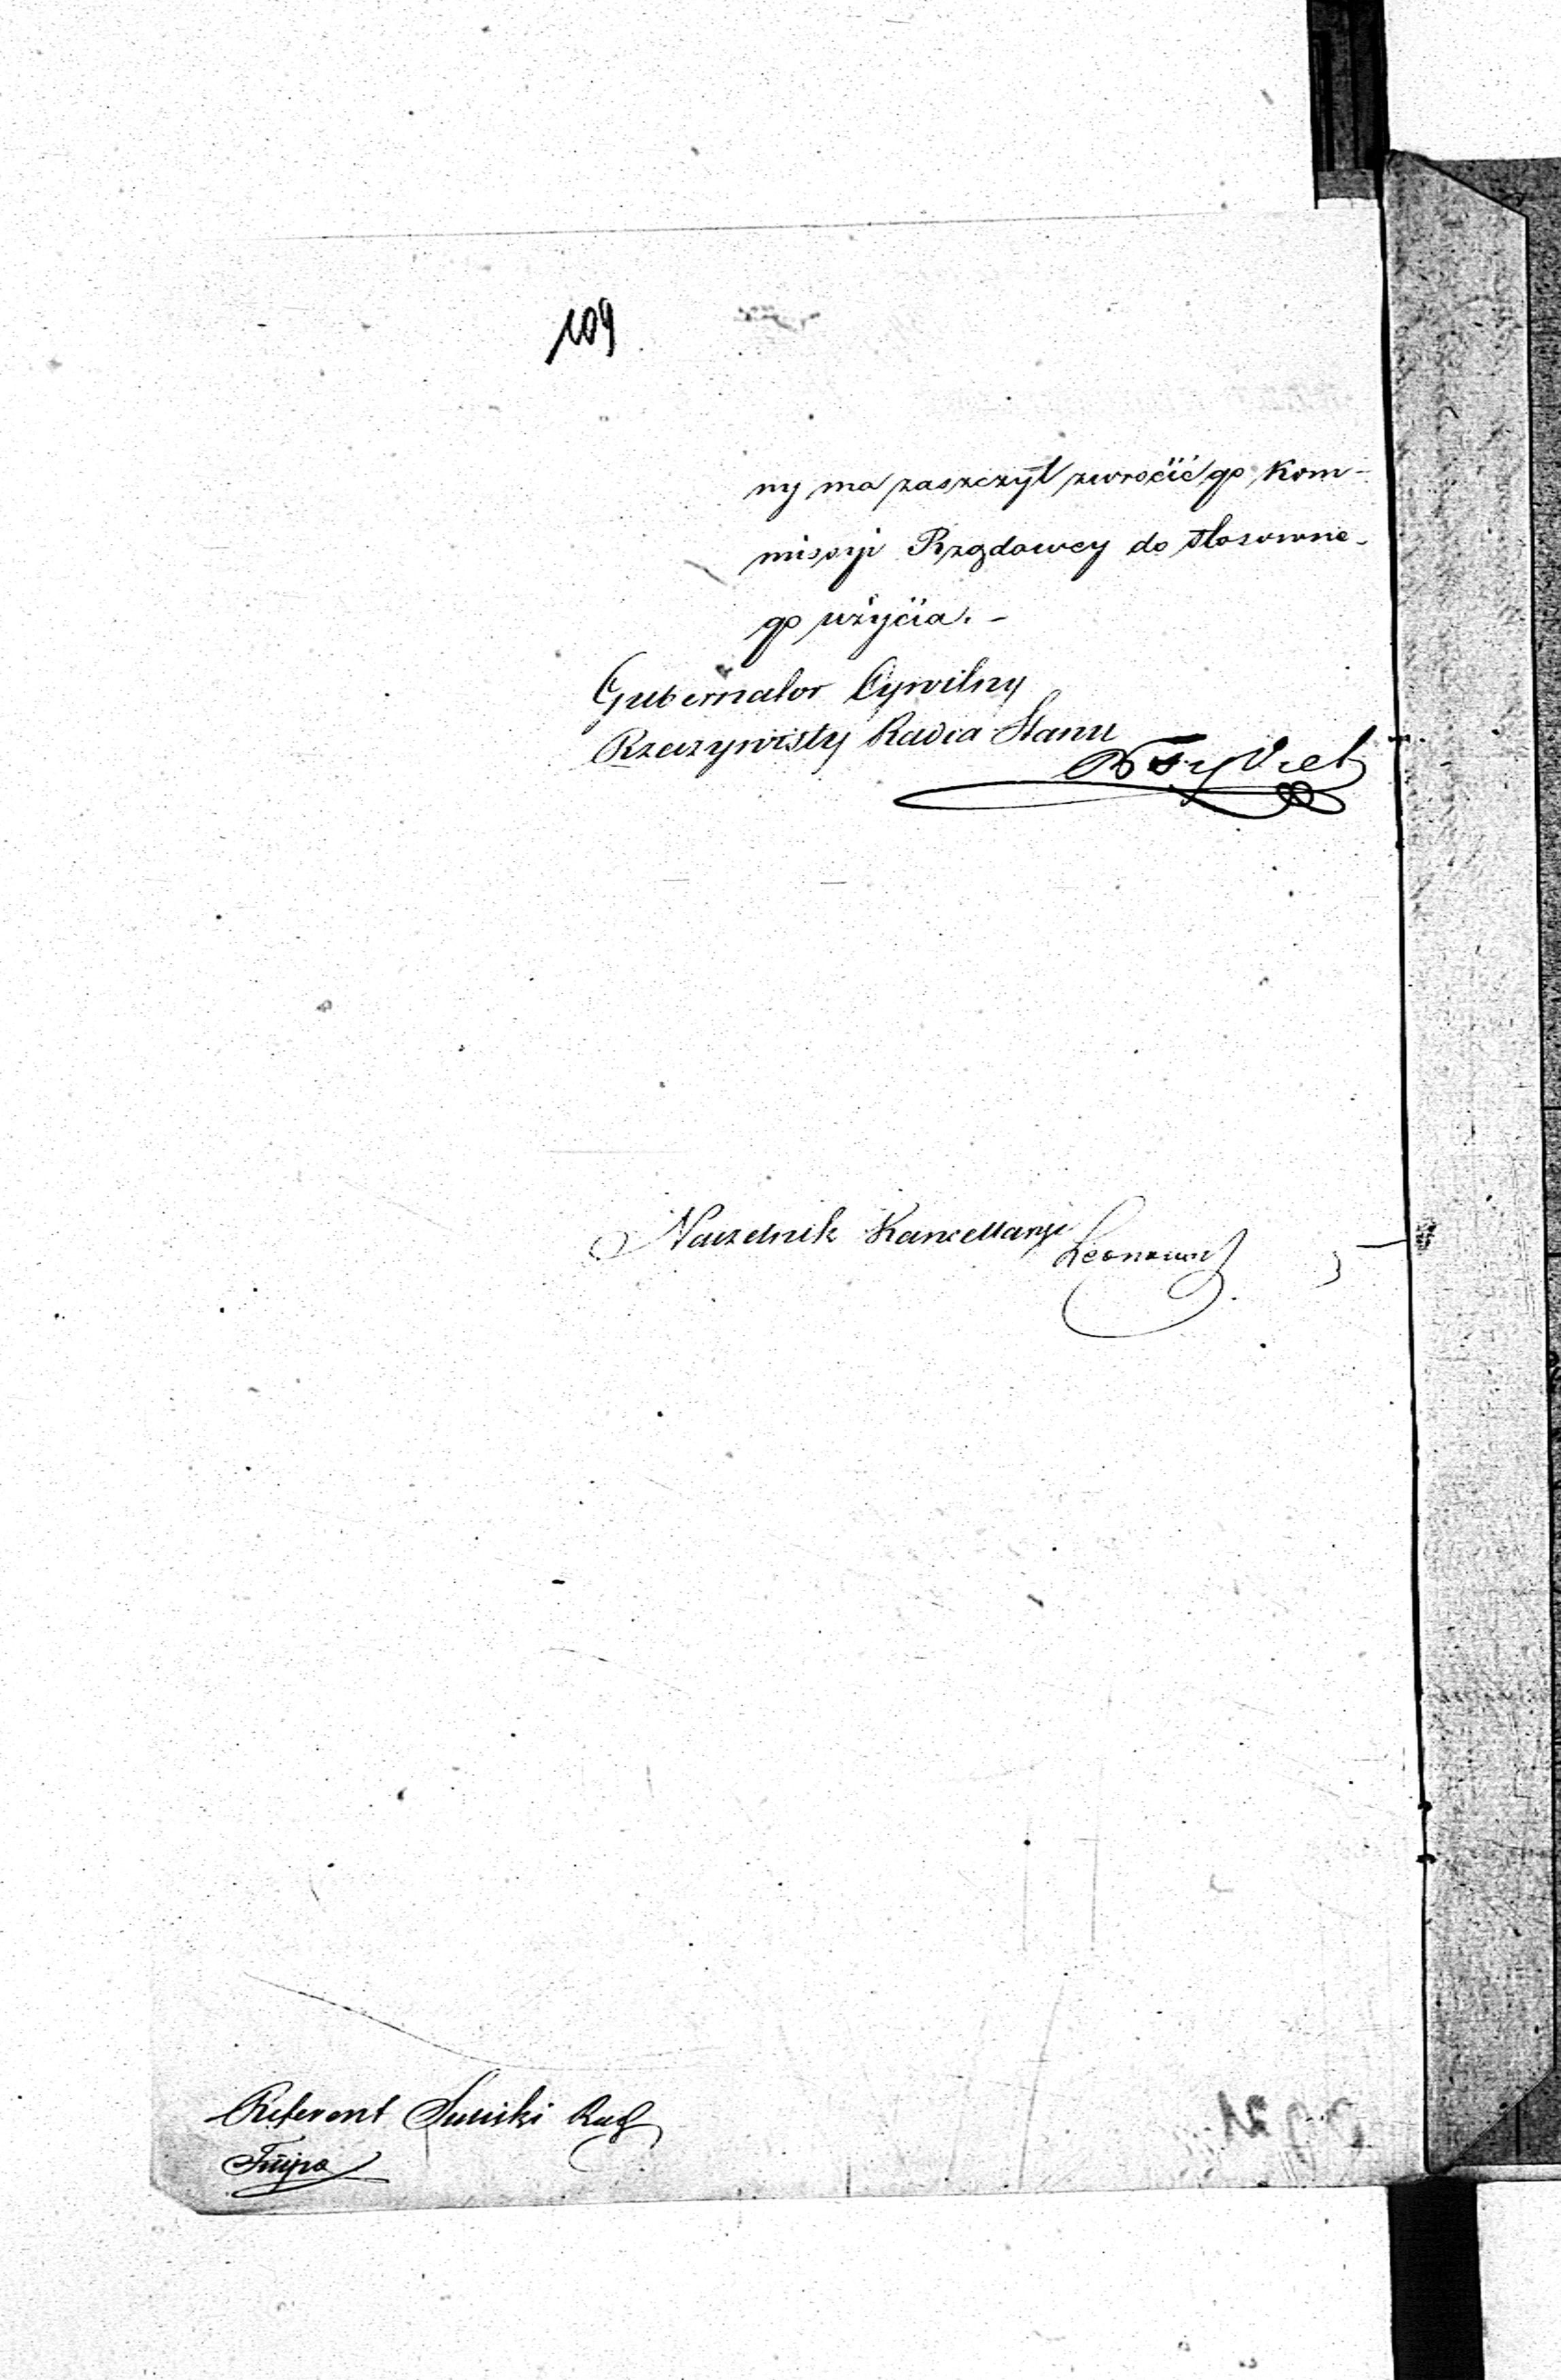 109
ny ma zaszczyt zwrócić go Kom-
missyi Rządowey do stosowne-
go użycia. -
Gubernator Cywilny
Rzeczywisty Radca Stanu
Naczelnik Kancellaryi
Referent